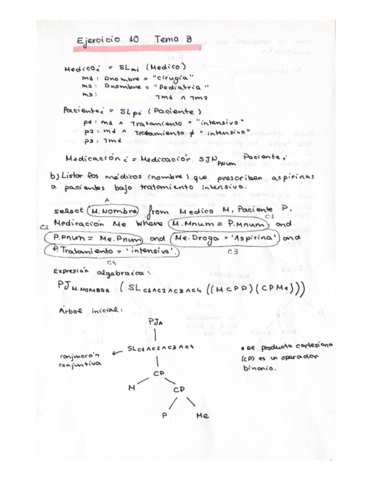 Ejercicio 10 Tema 3
Medicoi = SLmi (Medico)
m1: Dnombre = "Cirugía"
m2: Dnombre = "Pediatría"
m3: ⌐m1 ∧ ⌐m2
Pacientei = SLpi (Paciente)
p1: m1 ∧ Tratamiento = "intensivo"
p2: m1 ∧ Tratamiento ≠ "intensivo"
p3: ⌐m1
Medicacióni = Medicación SJNPnum Pacientei
b) Listar los médicos (nombre) que prescriban aspirinas
a pacientes bajo tratamiento intensivo.
A
select M.Nombre from Medico M, Paciente P,
C1
Medicación Me where M.Mnum = P.Mnum and
C2
P.Pnum = Me.Pnum and Me.Droga = 'Aspirina' and
P.Tratamiento = 'intensivo';
C3
C4
Expresión algebraica:
PJM.NOMBRE (SLC1∧C2∧C3∧C4 ((M CP P) (CP Me)))
Árbol inicial:
PJA
conjunción
conjuntiva
SLC1∧C2∧C3∧C4
CP
M
CP
P
Me
producto cartesiano
(CP) es un operador
binario.